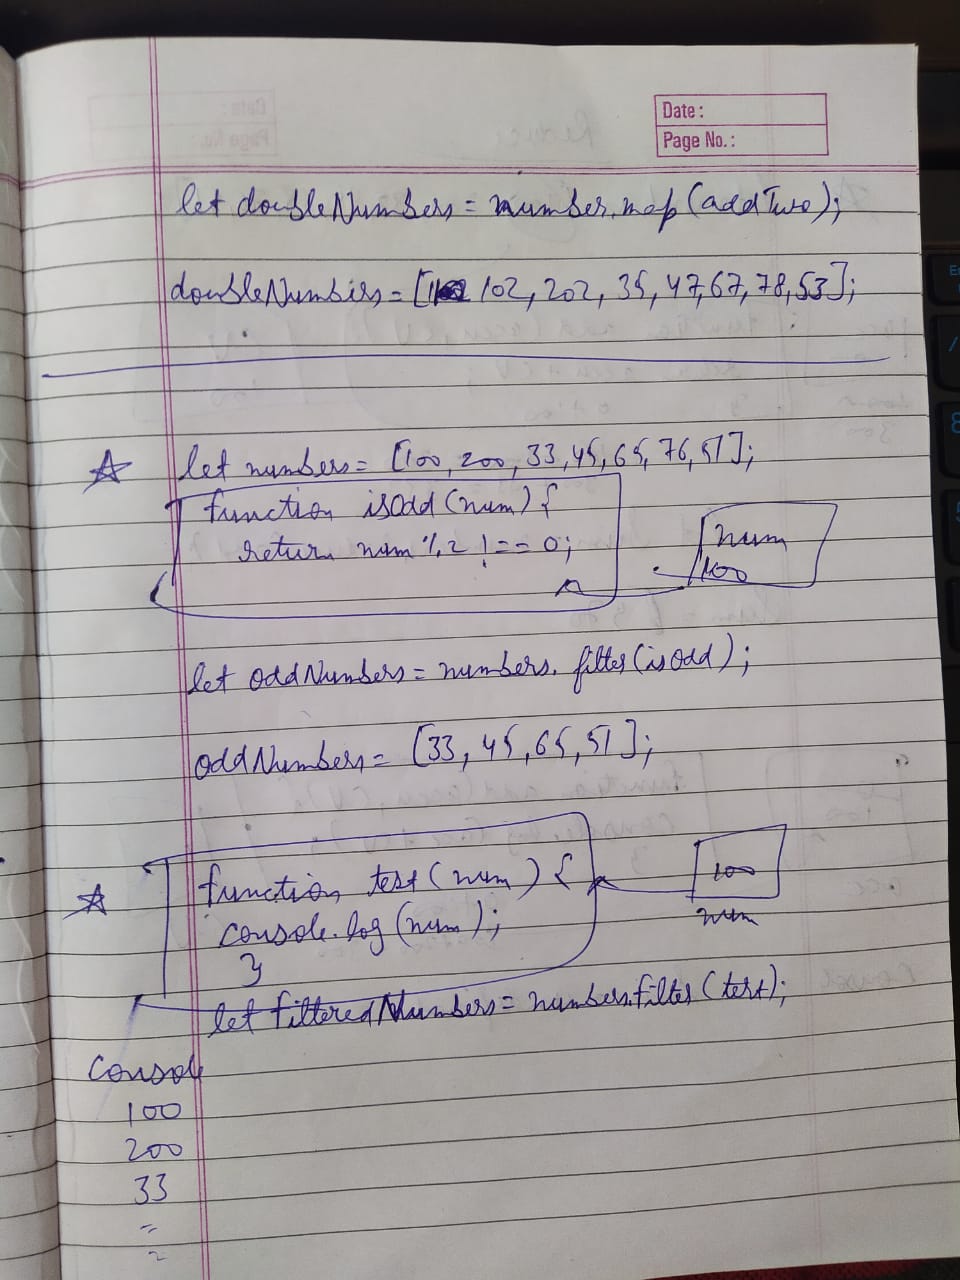 Date :
Page No. :
let doubleNumbers = number.map(addTwo);
doubleNumbers = [102, 202, 35, 47, 67, 78, 53];
let numbers = [100, 200, 33, 45, 65, 76, 51];
function isOdd (num) {
return num % 2 !== 0;
num
100
let oddNumbers = numbers.filter(isOdd);
oddNumbers = [33, 45, 65, 51];
function test (num) {
console.log (num);
}
100
num
let filteredNumbers = numbers.filter(test);
Console
100
200
33